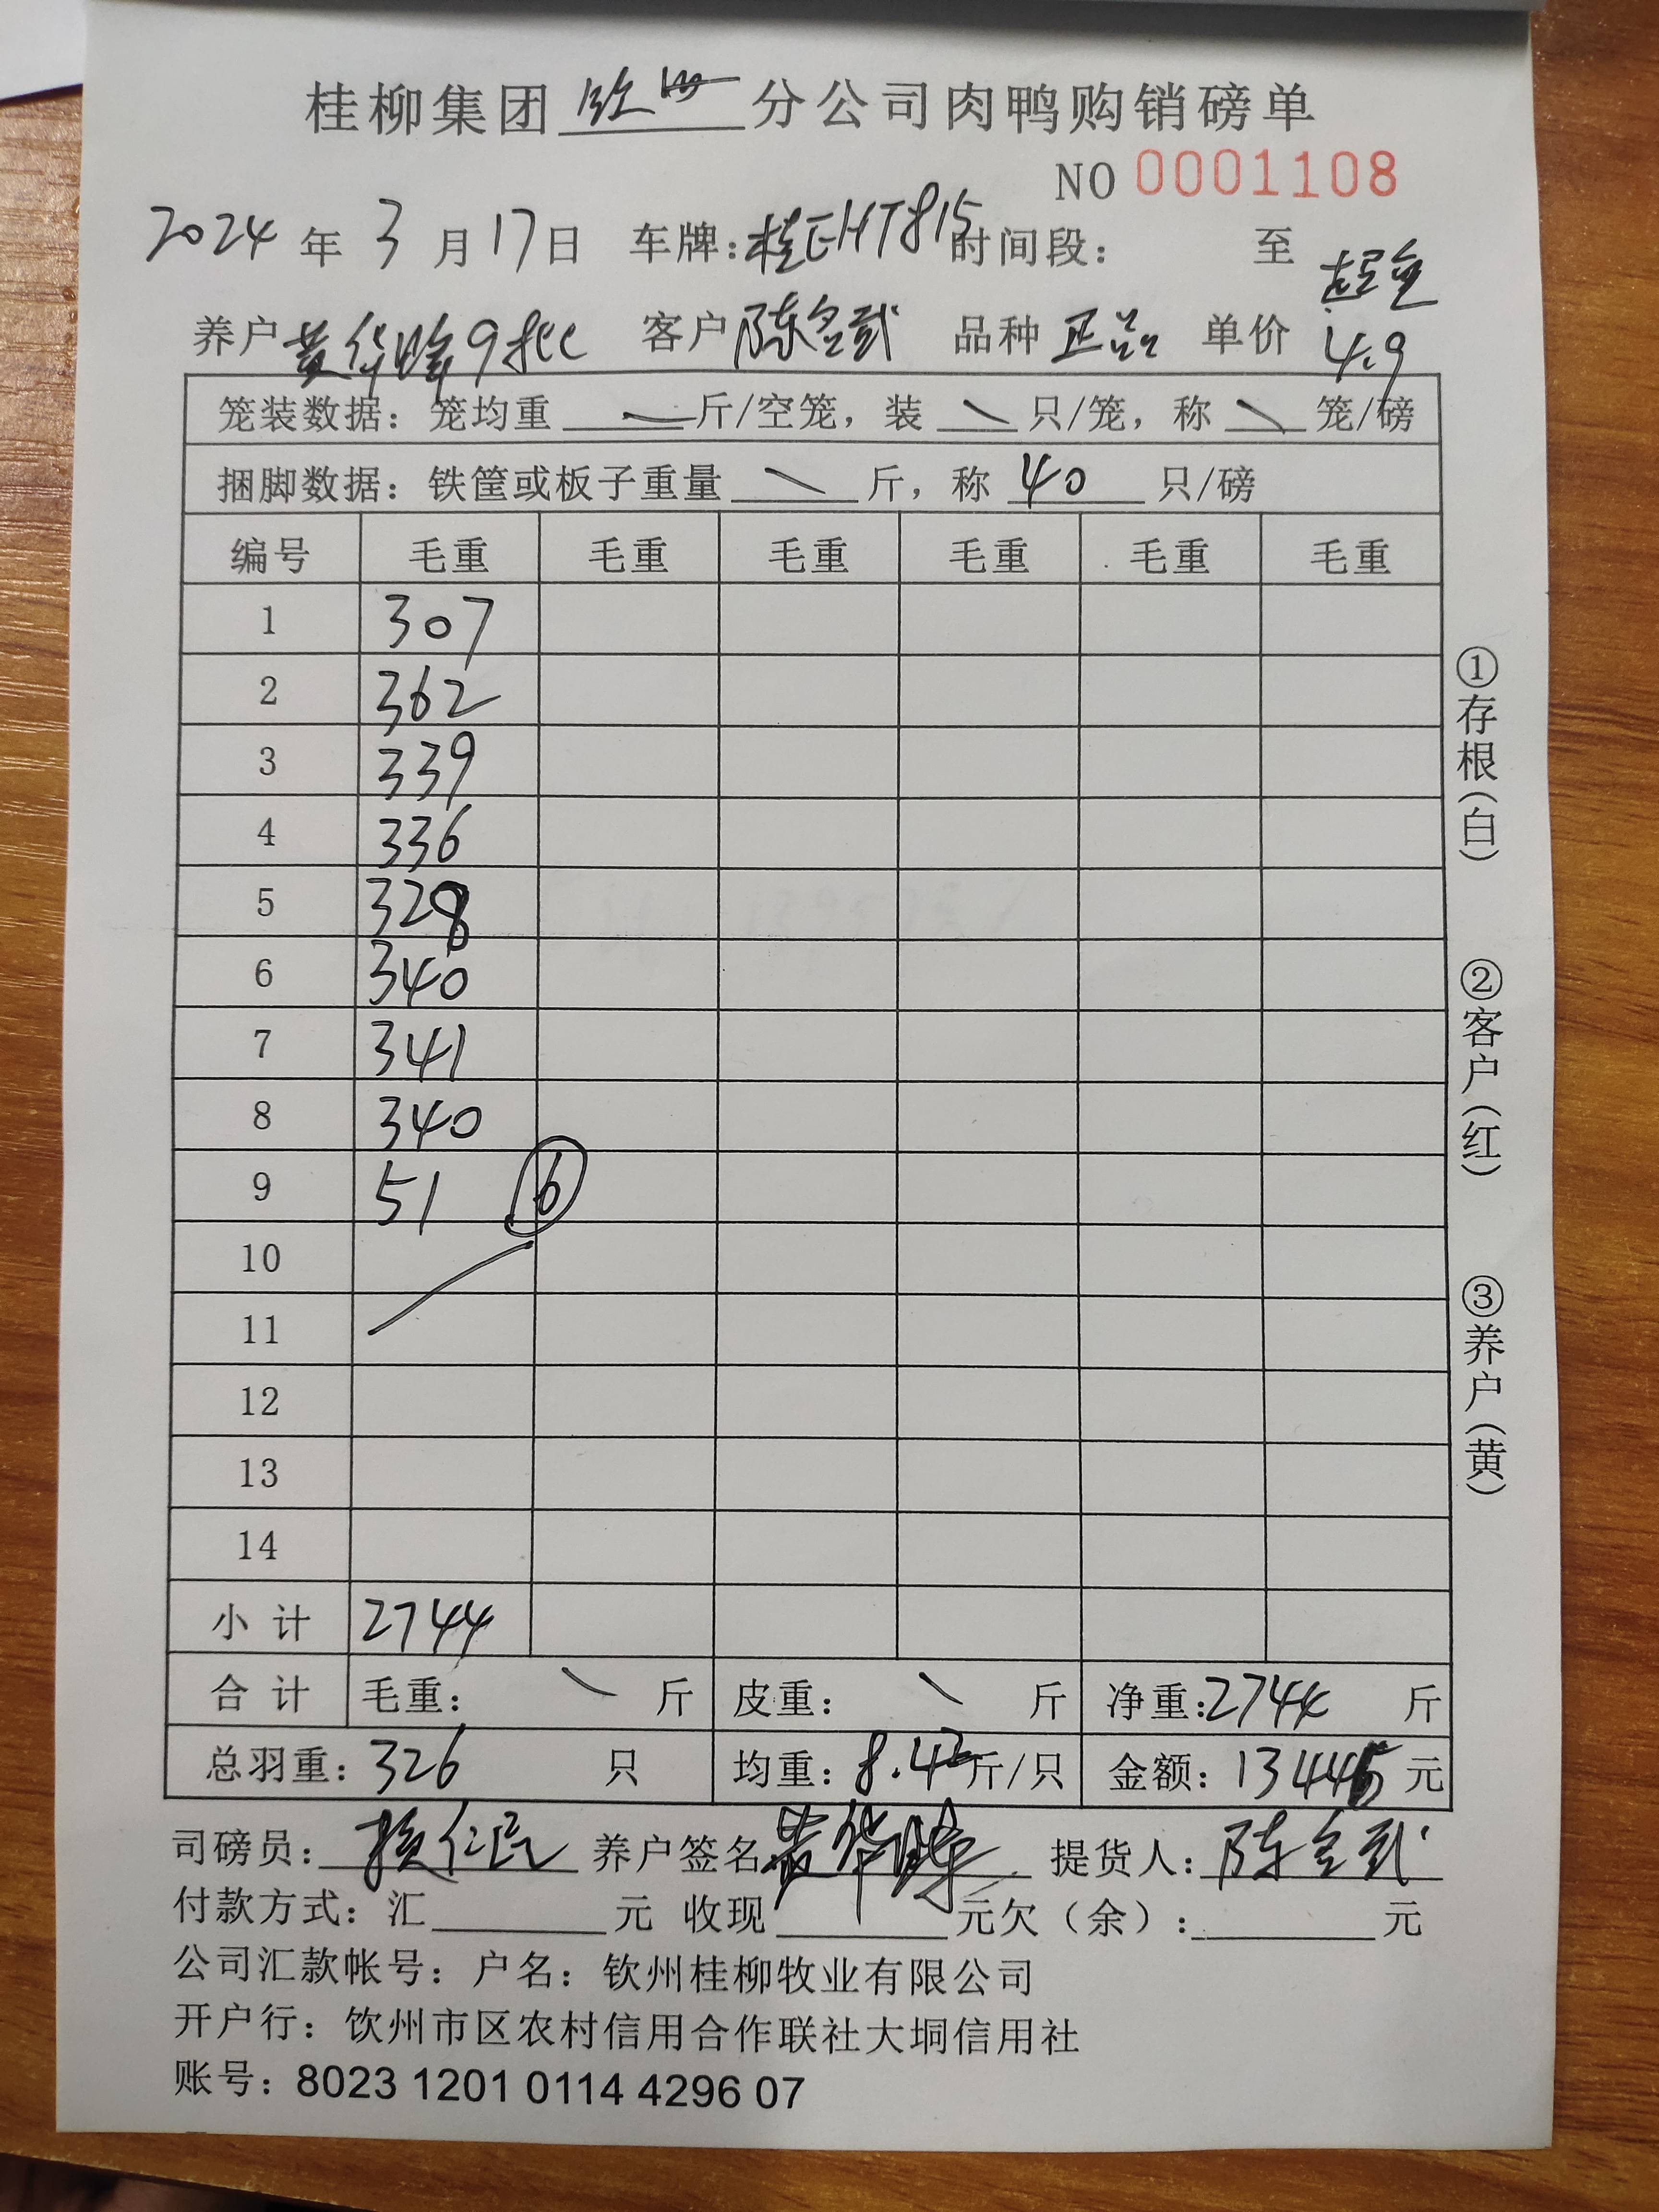 桂柳集团 钦州 分公司肉鸭购销磅单
NO 0001108
2024 年 3 月 17 日 车牌：桂EHT815 时间段： 至
养户 黄华 9批 客户 陈金武 品种 正品 单价 4.9
笼装数据：笼均重 斤/空笼，装 只/笼，称 笼/磅
捆脚数据：铁筐或板子重量 斤，称 40 只/磅
编号 毛重 毛重 毛重 毛重 毛重 毛重
1 307
2 362
3 339
4 336
5 328
6 340
7 341
8 340
9 51 6
10
11
12
13
14
小计 2744
合计 毛重： 斤 皮重： 斤 净重：2744 斤
总羽重：326 只 均重：8.42 斤/只 金额：13445 元
司磅员： 仁 养户签名 黄华 提货人：陈金武
付款方式：汇 元 收现 元欠（余）： 元
公司汇款帐号：户名：钦州桂柳牧业有限公司
开户行：饮州市区农村信用合作联社大垌信用社
账号：8023 1201 0114 4296 07
①存根（白）
②客户（红）
③养户（黄）